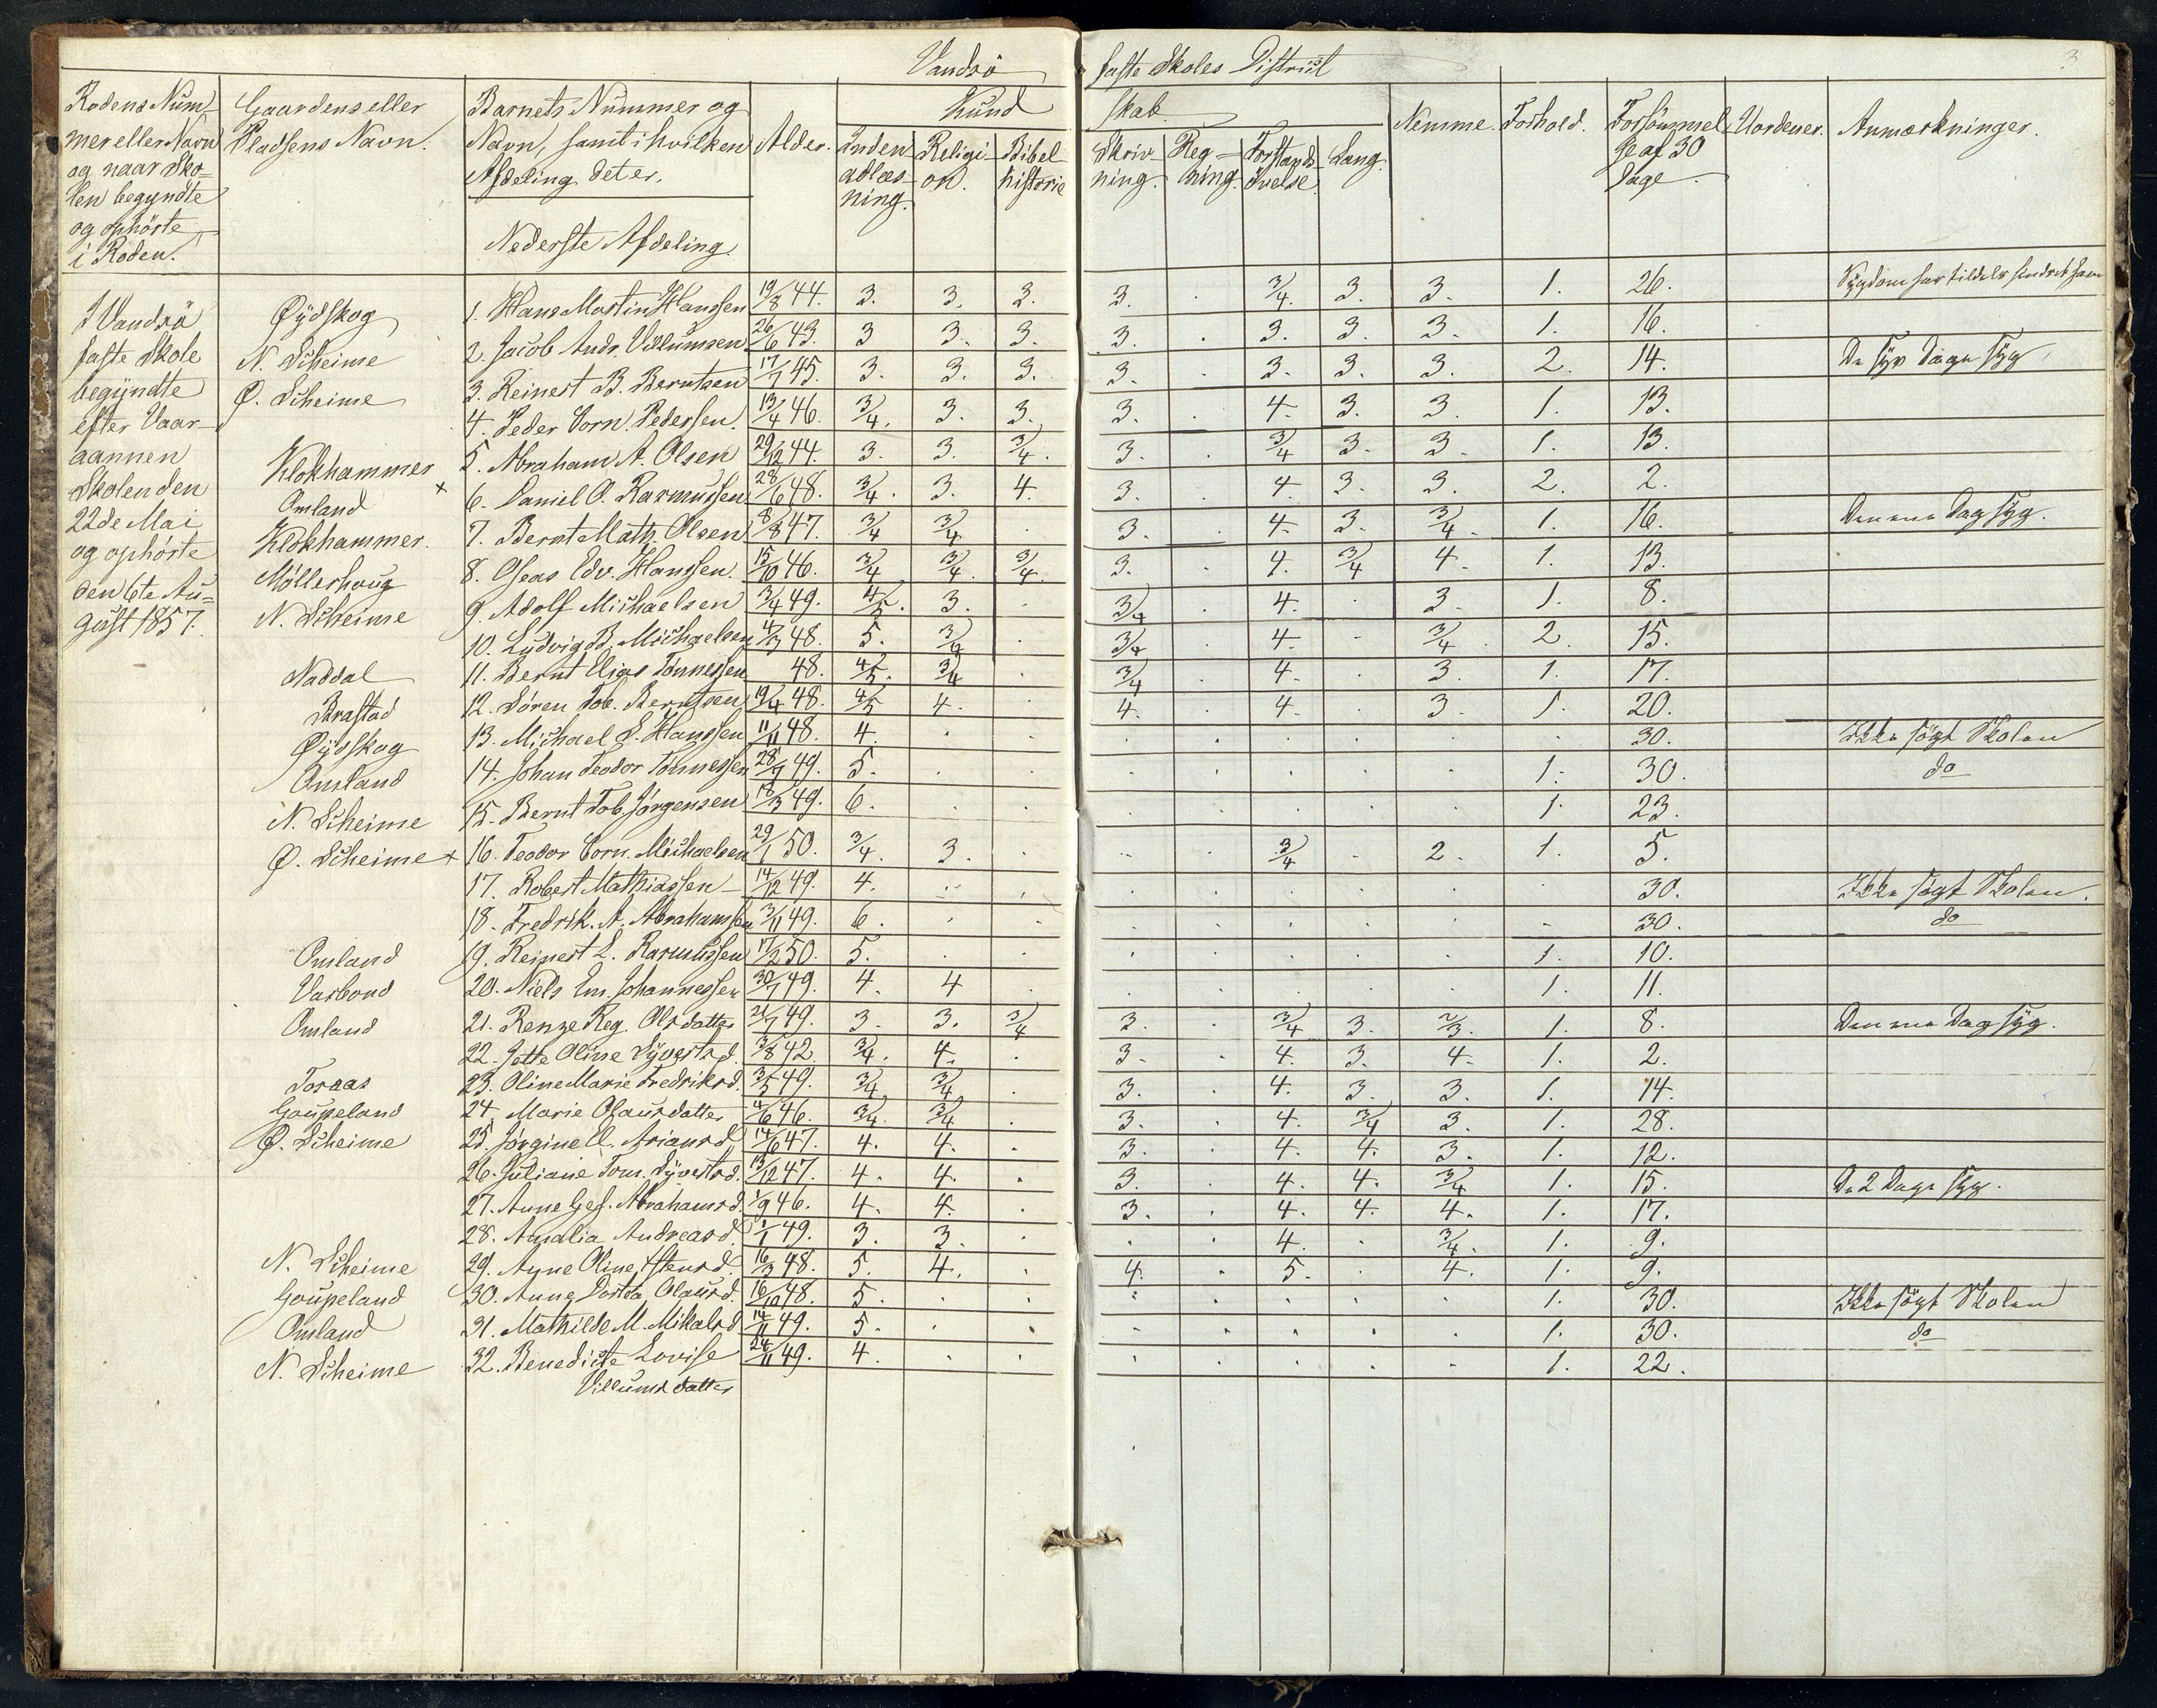 Vandsö faste Skoles District
3
Rodens Num-
mer eller Navn
og naar Sko-
len begyndte
og ophörte
i Roden.
Gaardens eller
Pladsens Navn.
Barnets Nummer og
Navn, samt i hvilken
Afdeling det er.
Nederste Afdeling.
Alder.
Kundskab.
Inden-
adlæs-
ning.
Religi-
on.
Bibel-
historie
Skriv-
ning.
Reg-
ning.
Forstands-
övelse
Sang.
Nemme.
Forhold.
Forsömmel-
se af 30
Dage
Uordener.
Anmærkninger.
I Vandsö
faste Skole
begyndte
efter Vaar-
aannen
Skolen den
22de Mai
og ophörte
den 6te Au-
gust 1857.
Öydskog 1. Hans Martin Hanssen 19/8 44. 3. 3. 3. 3. . 3/4. 3. 3. 1. 26.
N. Scheime 2. Jacob Andr. Villumsen 26/6 43. 3 3. 3. 3. . 3. 3. 3. 1. 16.
Ø. Scheime 3. Reinert B. Berntsen 17/7 45. 3. 3. 3. 3. . 3. 3. 3. 2. 14. De syv Dage syg
4. Peder Corn. Pedersen. 13/4 46. 3/4. 3. 3. 3. . 4. 3. 3. 1. 13.
Klokhammer 5. Abraham A. Olsen 29/12 44. 3. 3. 3/4. 3. . 3/4 3. 3. 1. 13.
Omland x 6. Daniel O. Rasmussen 28/6 48. 3/4. 3. 4. 3. . 4. 3. 3. 2. 2.
Klokhammer. 7. Bernt Math. Olsen 8/8 47. 3/4 3/4 . 3. . 4. 3. 3/4. 1. 16. Den ene Dag syg.
Möllerhoug 8. Oseas Edv. Hanssen. 15/10 46. 3/4 3/4. 3/4. 3. . 4. 3/4 4. 1. 13.
N. Scheime 9. Adolf Michaelsen 3/4 49. 4/5. 3. . 3/4 . 4. . 3. 1. 8.
10. Ludvig B. Michaelsen 4/7 48. 5. 3/4 . 3/4 . 4. . 3/4. 2. 15.
Naddal 11. Bernt Elias Tönnessen 48. 4/5. 3/4 . 3/4 . 4. . 3. 1. 17.
Brastad 12. Sören Tob. Berntsen 19/4 48. 4/5 4. . 4. . 4. . 3. 1. 20.
Öydskog 13. Michael S. Hanssen 11/11 48. 4. . . . . . . . . 30. Ikke sögt Skolen
Omland 14. Johan Teodor Tönnessen 28/7 49. 5. . . . . . . . 1. 30. do
N. Scheime 15. Bernt Tob. Jörgensen 18/3 49. 6. . . . . . . . 1. 23.
Ø. Scheime x 16. Teodor Corn. Michaelsen 29/1 50. 3/4. 3. . . . 3/4 . 2. 1. 5.
17. Robert Mathiassen 14/12 49. 4. . . . . . . . . 30. Ikke sögt Skolen.
18. Fredrik. A. Abrahamsen 3/11 49. 6. . . . . . . . . 30. do
Omland 19. Reinert L. Rasmussen 17/2 50. 5. . . . . . . . 1. 10.
Varbond 20. Niels Em. Johannessen 30/7 49. 4. 4 . . . . . . 1. 11.
Omland 21. Renze Reg. Olsdatter 21/7 49. 3. 3. 3/4 3. . 3/4 3. 2/3. 1. 8. Den ene Dag syg.
22. Jette Oline Syvertsd. 3/8 42. 3/4. 4. . 3. . 4. 3. 4. 1. 2.
Toraas 23. Oline Marie Fredriksd. 3/5 49. 3/4 3/4 . 3. . 4. 3. 3. 1. 14.
Goupeland 24. Marie Olausdatter 4/6 46. 3/4. 3/4 . 3. . 4. 3/4 3. 1. 28.
Ø. Scheime 25. Jörgine E. Ariansd. 14/6 47. 4. 4. . 3. . 4. 4. 3. 1. 12.
26. Juliane Tom. Syvertsd. 13/12 47. 4. 4. . 3. . 4. 4. 3/4 1. 15. De 2 Dage syg.
27. Anne Gef. Abrahamsd. 1/9 46. 4. 4. . 3. . 4. 4. 4. 1. 17.
28. Amalia Andreasd. 49. 3. 3. . . . 4. . 3/4. 1. 9.
N. Scheime 29. Anne Oline Ostensd. 16/3 48. 5. 4. . 4. . 5. . 4. 1. 9.
Goupeland 30. Anne Dortea Olausd. 16/10 48. 5. . . . . . . . 1. 30. Ikke sögt Skolen
Omland 31. Mathilde M. Mikalsd 14/11 49. 5. . . . . . . . 1. 30. do
N. Scheime 32. Benedicte Lovise 24/11 49. 4. . . . . . . . 1. 22.
Villumsdatter